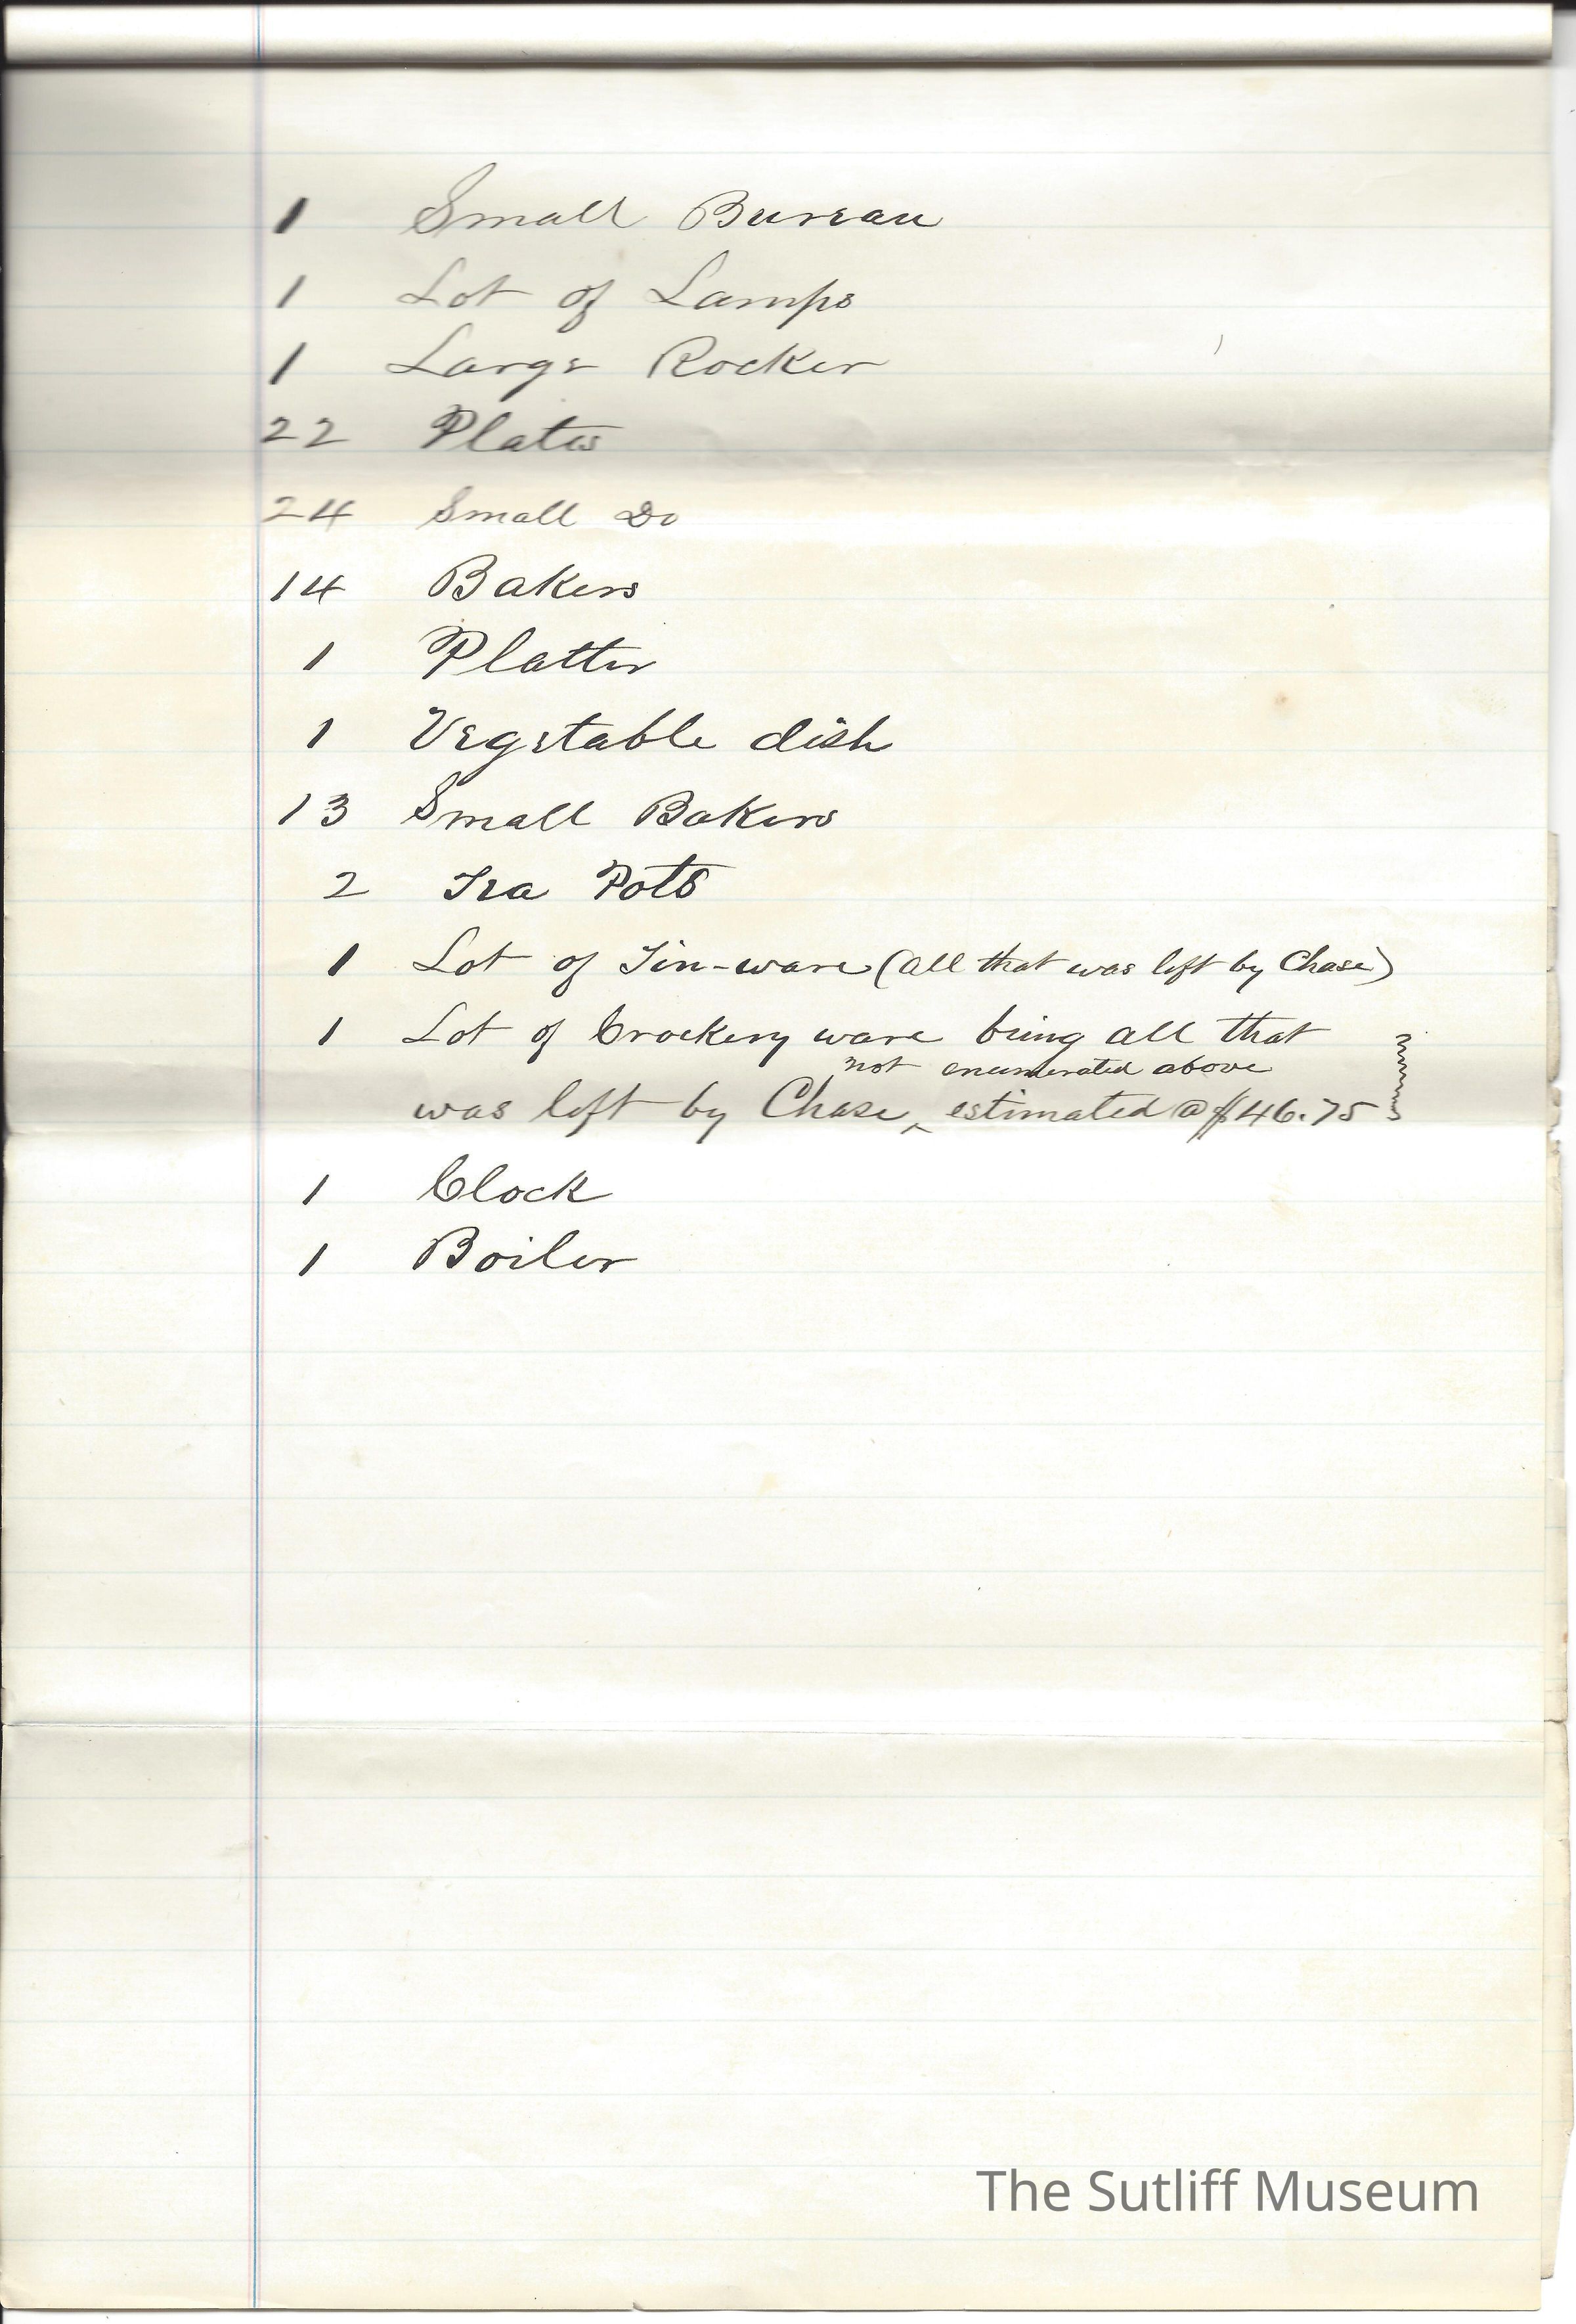 1 Small Bureau
1 Lot of Lamps
1 Large Rocker
22 Plates
24 Small Do
14 Bakers
1 Platter
1 Vegetable dish
13 Small Bakers
2 Tea Pots
1 Lot of Tin-ware (all that was left by Chase)
1 Lot of Crockery ware being all that
not enumerated above
was left by Chase, ‸ estimated @ $46.75
1 Clock
1 Boiler
The Sutliff Museum